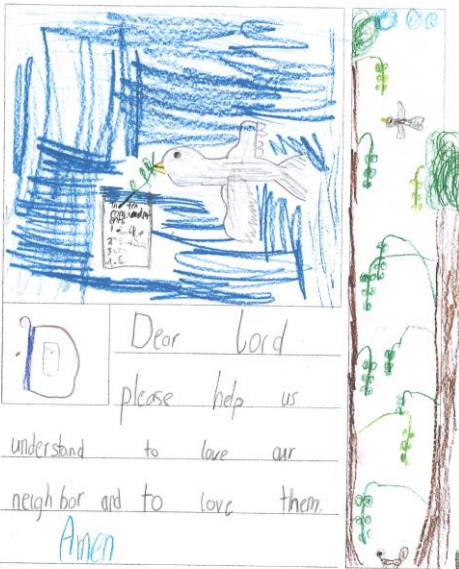 Dear Lord
please help us
understand to love our
neighbor and to love them.
Amen